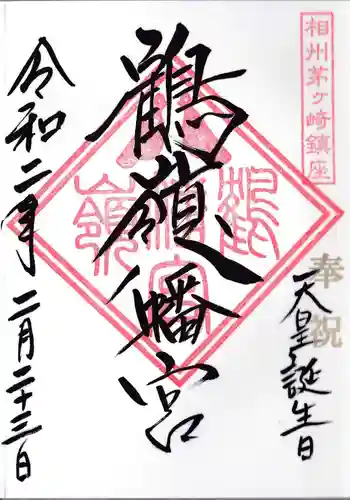 相州茅ヶ崎鎮座
奉祝
天皇誕生日
鶴嶺八幡宮
令和二年二月二十三日